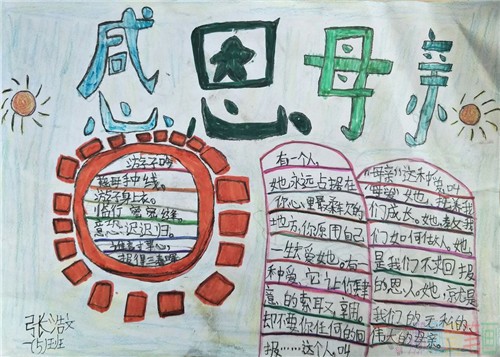 感恩母亲
游子吟
慈母手中线。
游子身上衣。
临行密密缝。
意恐迟迟归。
谁言寸草心。
报得三春晖
有一个人。
她永远占据在
你心里最柔软的
地方,你愿用自己
一生去爱她。有一
种爱。它让你肆
意的索取、享用。
却不要你任何的回
报……这个人。叫
"母亲"这个爱。叫
"母爱"她,扶养我
们成长。她。教我
们如何做人。她。
是我们不求回报
的恩人。她就是
我们的无私的
伟大的母亲。
张浩文
(5)班